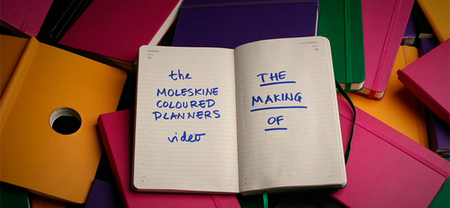 the
MOLESKINE
COLOURED
PLANNERS
video
THE
MAKING
OF